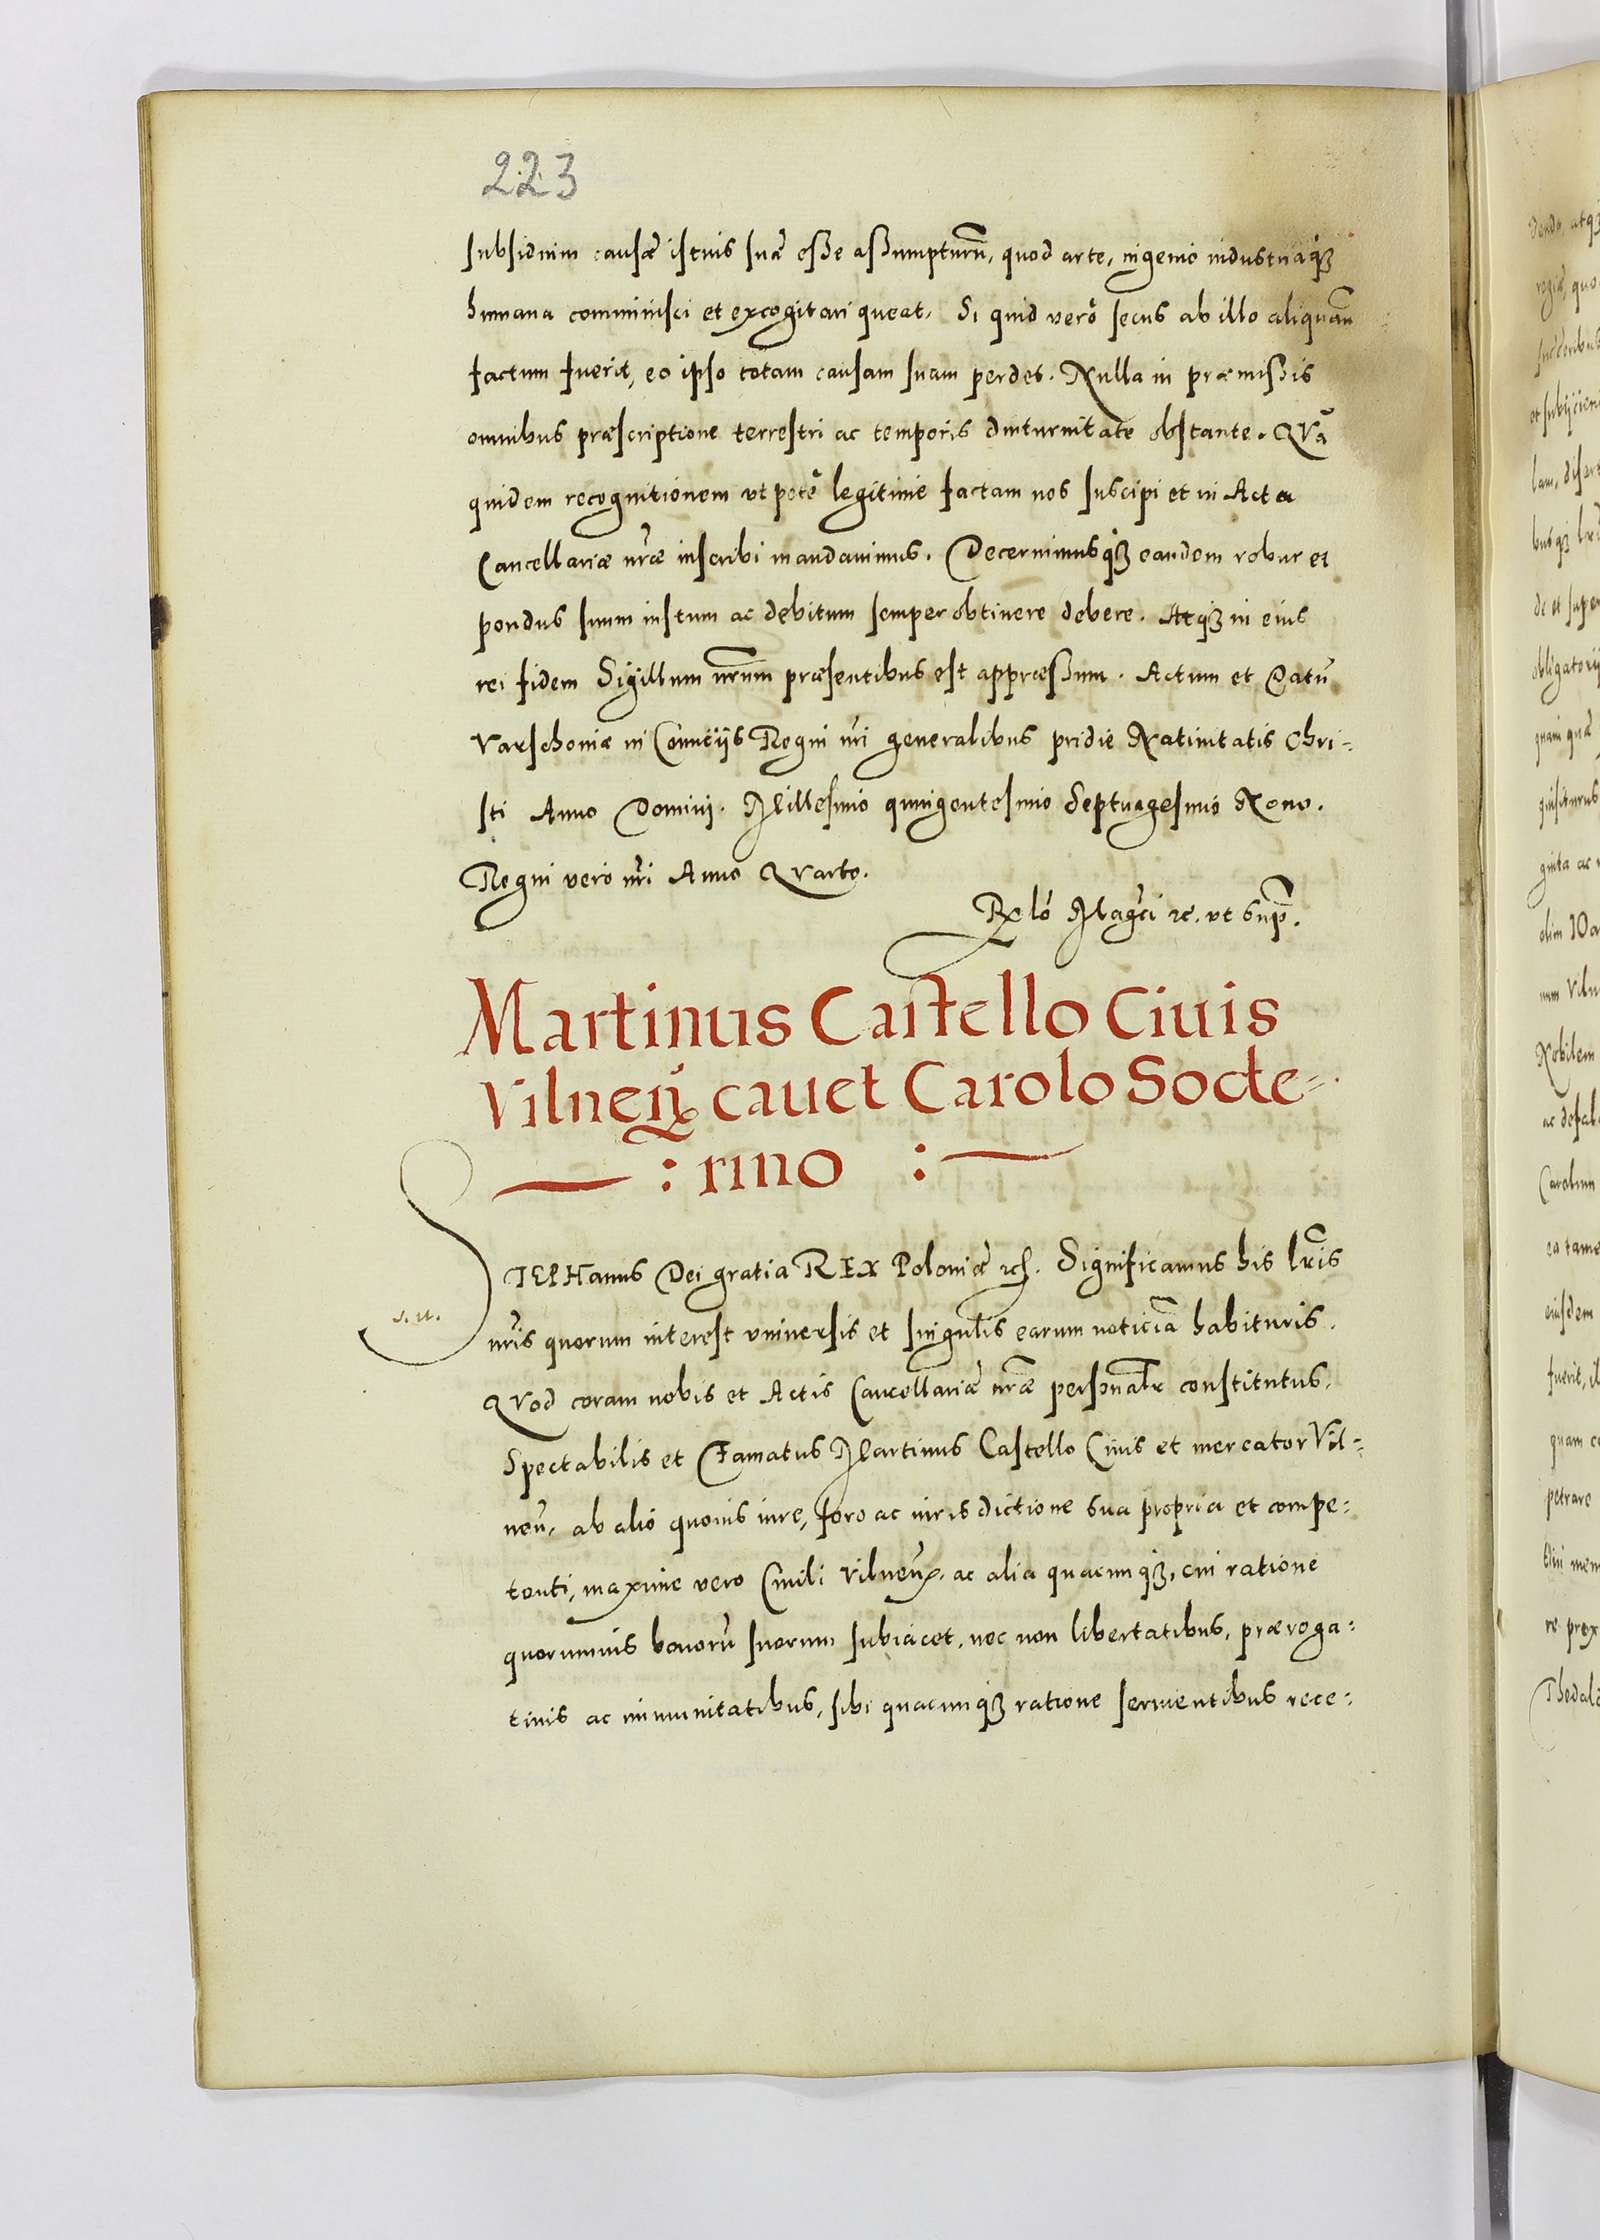 223
subsidium causæ istius suæ esse assumpturũ, quod arte, ingenio industriaqȝ
humana comminisci et excogitari queat. Si quid vero secus ab illo aliquam
factum fuerit, eo ipso totam causam suam perdet. Nulla in præmissis
omnibus præscriptione terrestri ac temporis diuturnitate obstante. Qvã
quidem recognitionem utpote legitime factam nos suscipi et in Acta
Cancellariæ nr̃æ inscribi mandavimus. Decernimusqȝ eandem robur et
pondus suum iustum ac debitum semper obtinere debere. Atqȝ in eius
rei fidem Sigillum nr̃um præsentibus est appræssum. Actum et Datũ
Varschoviæ in Comitijs Regni nr̃i generalibus pridie Nativitatis Chri=
sti Anno Dominj. Millesimo quingentesimo Septuagesimo Nono.
Regni vero nr̃i Anno Qvarto.
Relo Magci ꝛc. ut supͣ.
Martinus Castello Ciuis
Vilneñ cauet Carolo Socte=
: rino :
STEPHanus Dei gratia REX Poloniæ ꝛc. Significamus his lr̃is
nr̃is quorum interest vniuersis et singulis earum noticiã habituris.
Qvod coram nobis et Actis Cancellariæ nr̃æ personalr̃ constitutus.
Spectabilis et Famatus Martinus Castello Ciuis et mercator Vil=
neñ. ab alio quouis iure, foro ac iurisdictione sua propria et compe=
tenti, maxime vero Ciuili Vilneñ. ac alia quacunqȝ, cui ratione
quorumuis bonorũ suorum subiacet, nec non libertatibus, præroga=
tiuis ac immunitatibus, sibi quacunqȝ ratione seruientibus rece=